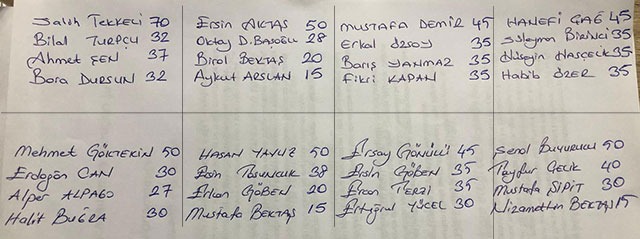 Salih TEKKELİ 70
Bilal TURPÇU 32
Ahmet ŞEN 37
Bora DURSUN 32
Ersin AKTAŞ 50
Oktay D.BAŞOĞLU 28
Birol BEKTAŞ 20
Aykut ARSLAN 15
MUSTAFA DEMİR 45
Erkal ÖZSOY 35
Barış YANMAZ 35
Fikri KAPAN 35
HANEFİ ÇAĞ 45
Süleyman BİRİNCİ 35
Hüseyin HASÇELİK 35
Habib ÖZER 35
Mehmet GÖKTEKİN 50
Erdoğan CAN 30
Alper ALPAGO 27
Halit BUĞRA 30
HASAN YAVUZ 50
Esin TOSUNCUK 38
Erkan GÖBEN 20
Mustafa BEKTAŞ 15
Ersay GÖNÜLCÜ 45
Ersin GÖBEN 35
Ercan TERZİ 35
Ertuğrul YÜCEL 30
Şenol BUYURUCU 50
Tayfur ÇELİK 40
Mustafa SİPİT 30
Nizamettin BEKTAŞ 15